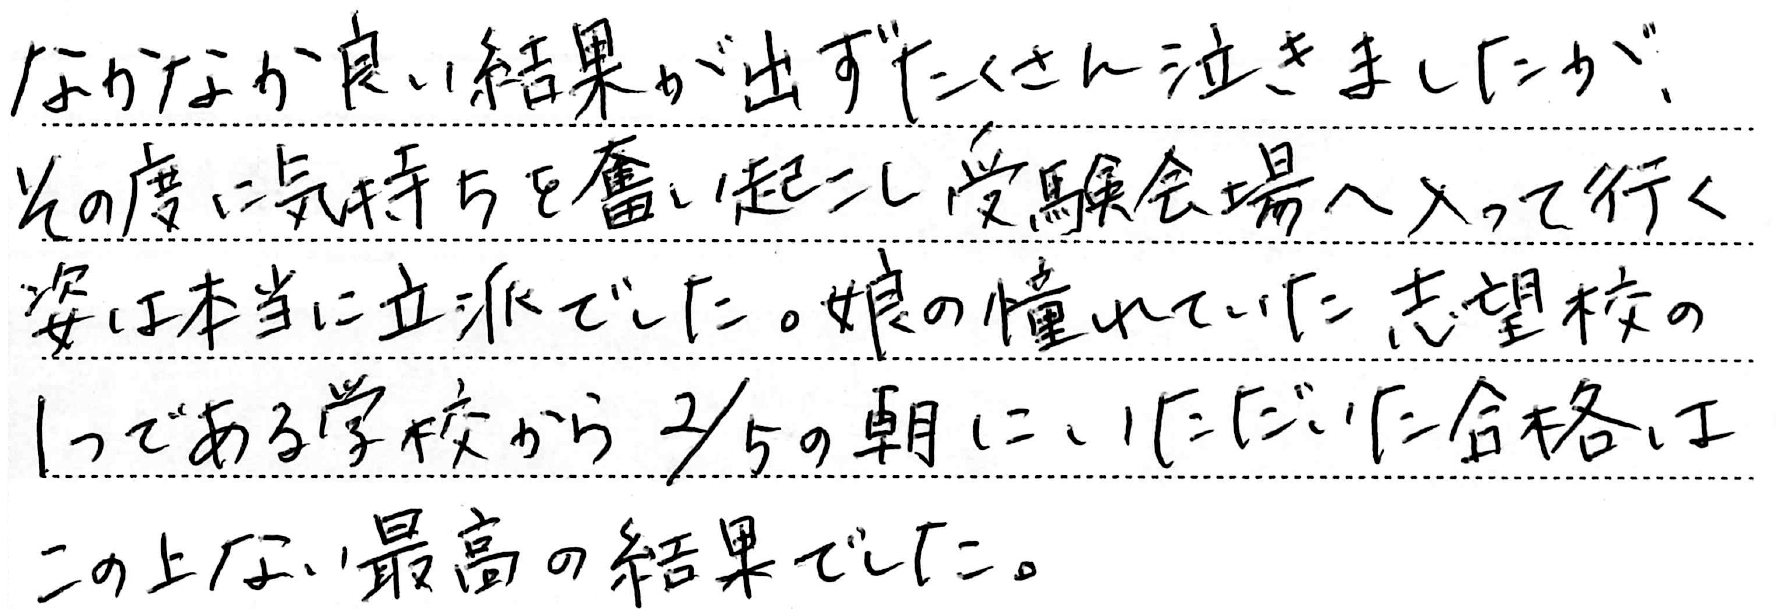 なかなか良い結果が出ずたくさん泣きましたが、
その度に気持ちを奮い起こし受験会場へ入って行く
姿は本当に立派でした。娘の憧れていた志望校の
1つである学校から2/5の朝にいただいた合格は
この上ない最高の結果でした。